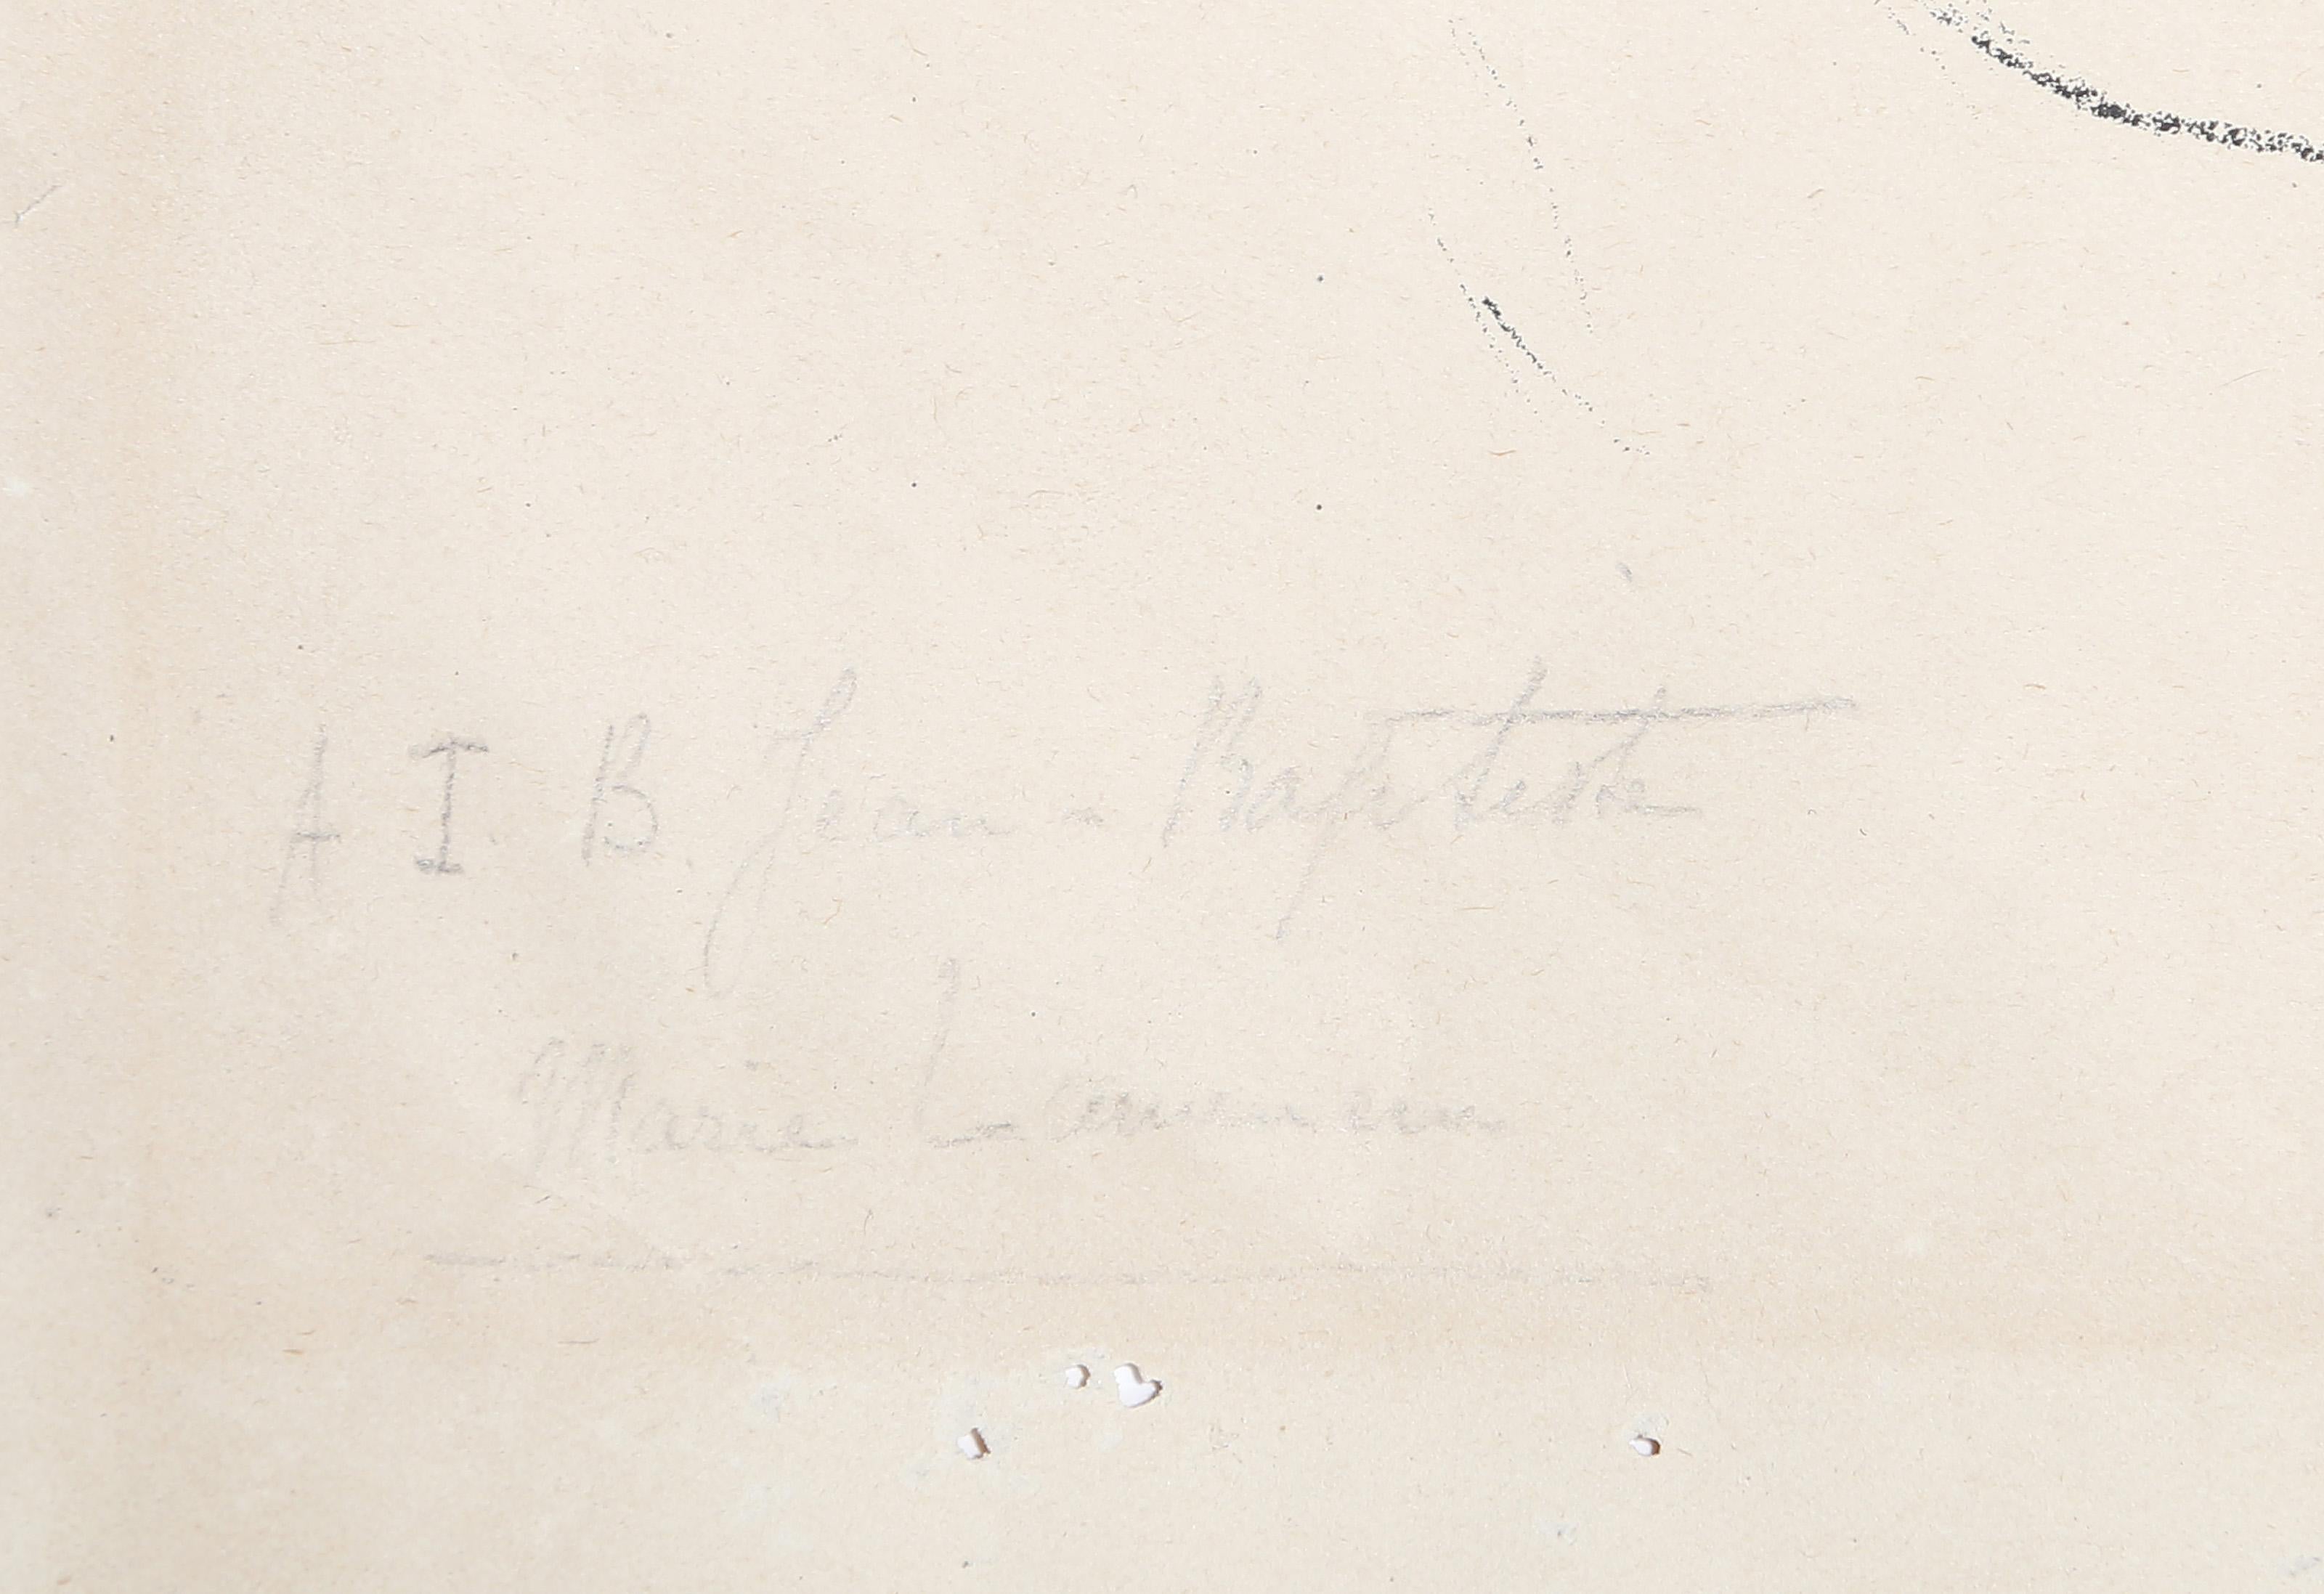 A I. B. Jean - Baptiste
Marie Laurencin